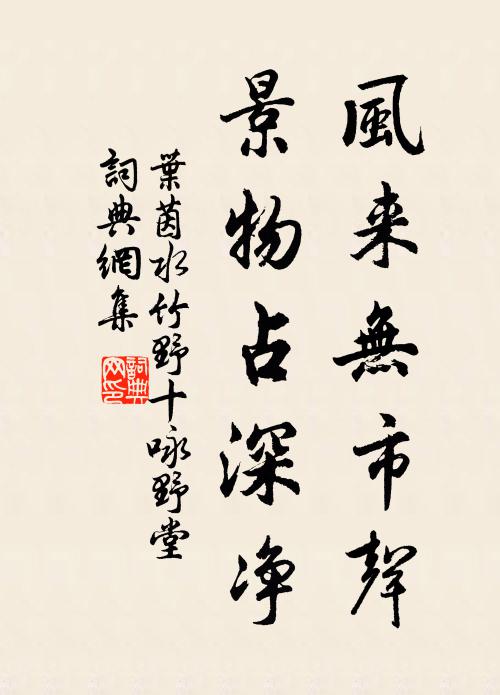 風来無市聲
景物占深浄
葉茵水竹野十咏野堂
詞典網集
詞典网印